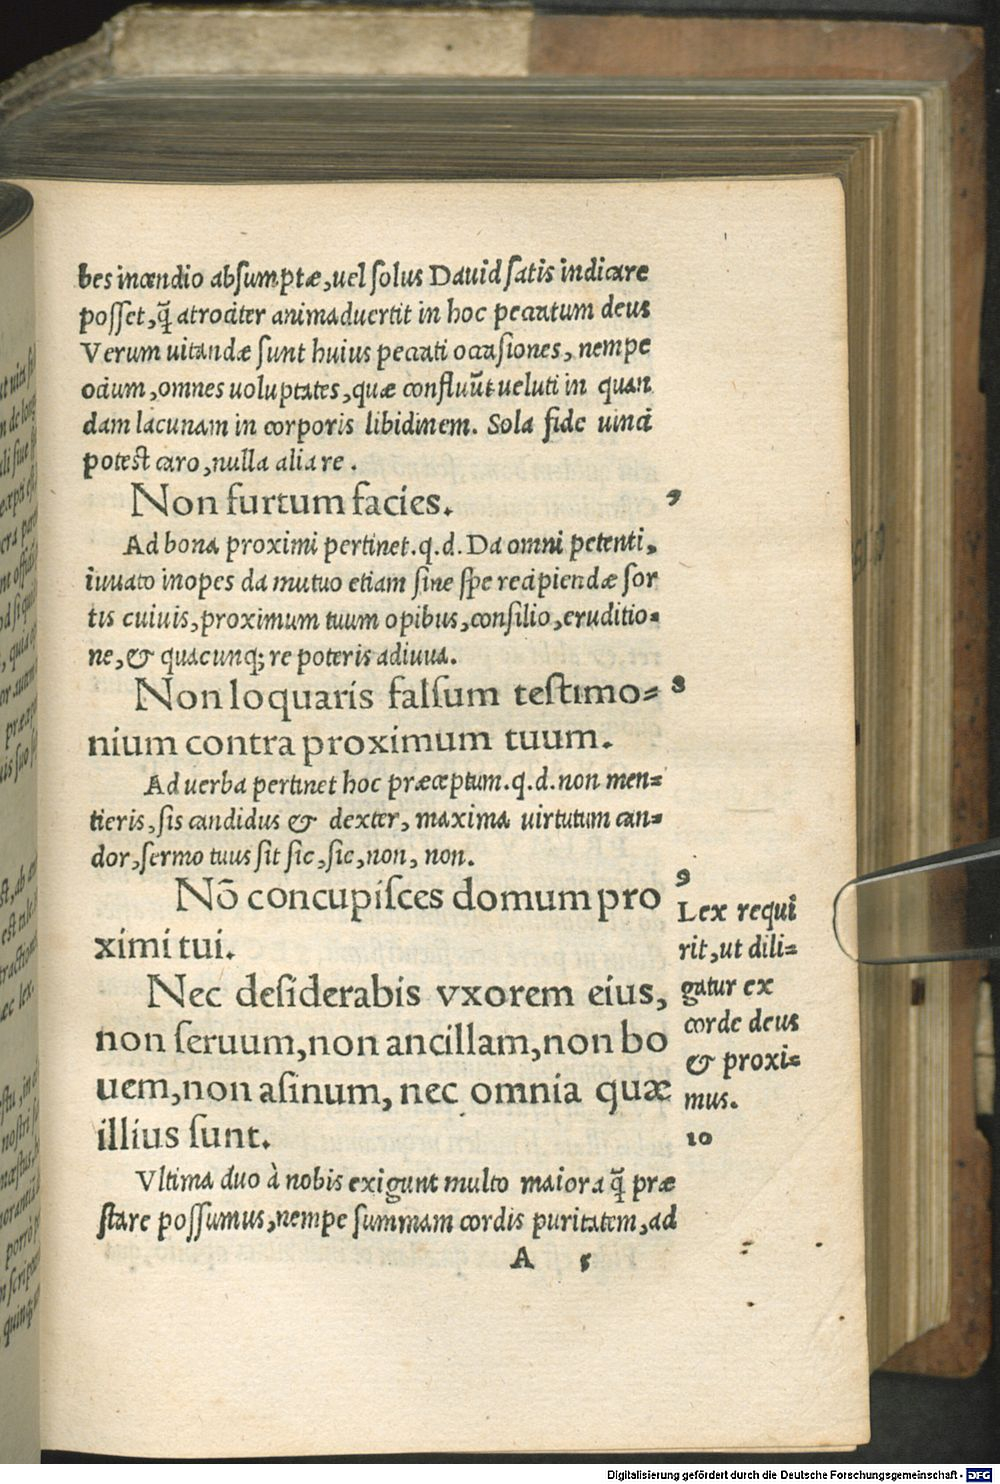 bes incendio absumptæ, uel solus Dauid satis indicare
posset, q̃ atrociter animaduertit in hoc peccatum deus
Verum uitandæ sunt huius peccati occasiones, nempe
ocium, omnes uoluptates, quæ confluũt ueluti in quan
dam lacunam in corporis libidinem. Sola fide uinci
potest caro, nulla alia re.
Non furtum facies. 7
Ad bona proximi pertinet. q. d. Da omni petenti,
iuuato inopes da mutuo etiam sine spe recipiendæ sor
tis cuiuis, proximum tuum opibus, consilio, eruditio=
ne, & quacunq; re poteris adiuua.
Non loquaris falsum testimo= 8
nium contra proximum tuum.
Ad uerba pertinet hoc præceptum. q. d. non men=
tieris, sis candidus & dexter, maxima uirtutum can=
dor, sermo tuus sit sic, sic, non, non.
Nõ concupisces domum pro
ximi tui.
Nec desiderabis vxorem eius,
non seruum, non ancillam, non bo
uem, non asinum, nec omnia quæ
illius sunt.
9
Lex requi
rit, ut dili=
gatur ex
corde deus
& proxi=
mus.
10
Vltima duo à nobis exigunt multo maiora q̃ præ
stare possumus, nempe summam cordis puritatem, ad
A 5
Digitalisierung gefördert durch die Deutsche Forschungsgemeinschaft - DFG